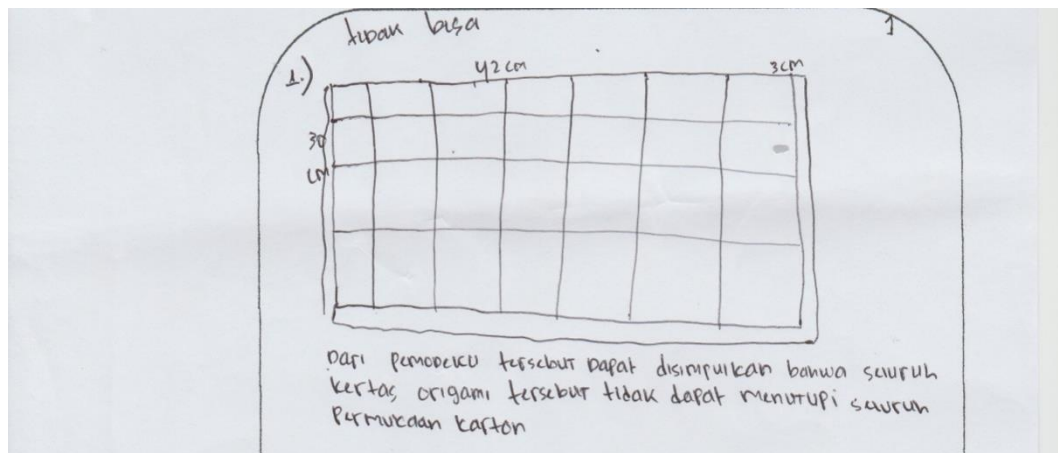 tidak bisa
1
1.)
42 cm
3cm
30
cm
Dari pemodelu tersebut dapat disimpulkan bahwa seluruh
kertas origami tersebut tidak dapat menutupi seluruh
Permukaan karton